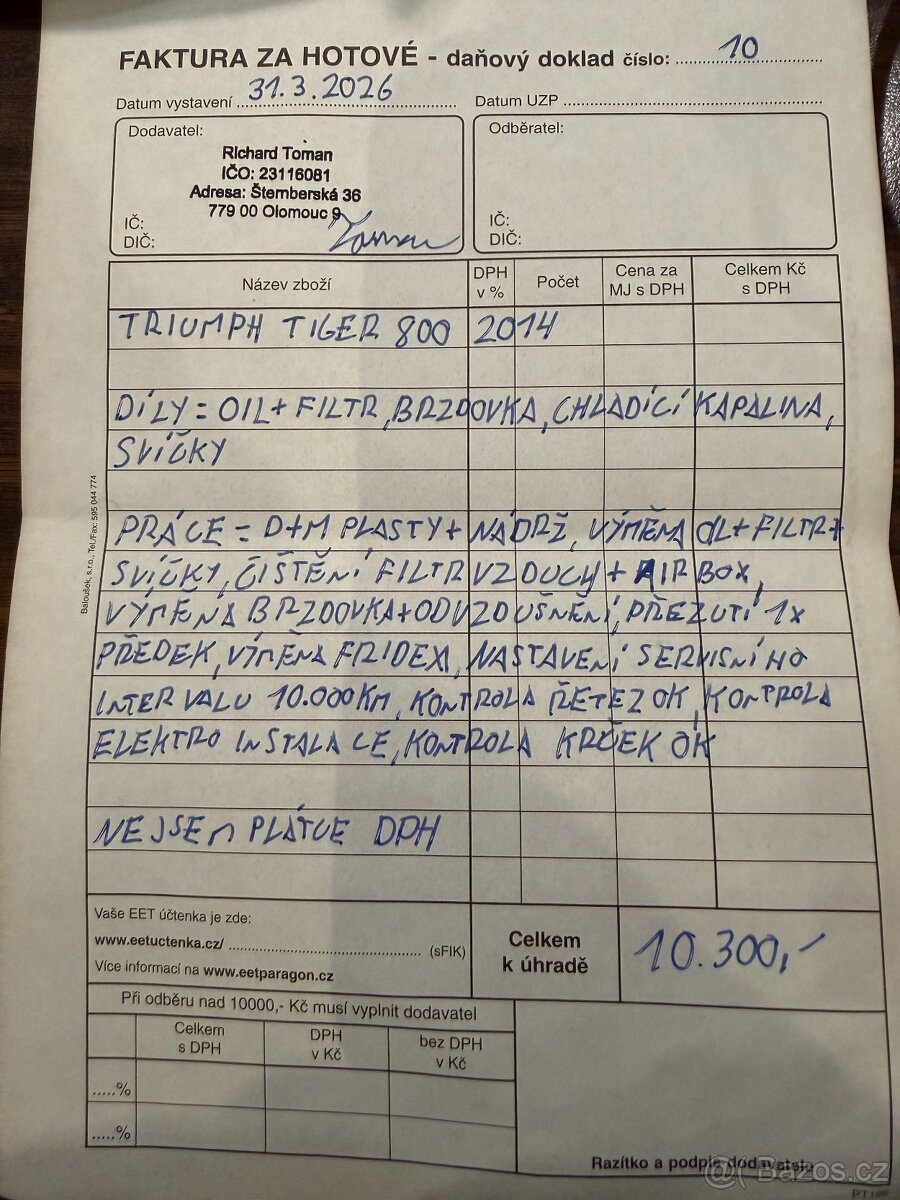 FAKTURA ZA HOTOVÉ - daňový doklad číslo: 10
Datum vystavení 31.3.2026 Datum UZP
Dodavatel:
Richard Toman
IČO: 23116081
Adresa: Štemberská 36
779 00 Olomouc 9
IČ:
DIČ:
Toman
Odběratel:
IČ:
DIČ:
Název zboží DPH v % Počet Cena za MJ s DPH Celkem Kč s DPH
TRIUMPH TIGER 800 2014
DÍLY = OIL + FILTR, BRZDOVKA, CHLADÍCÍ KAPALINA,
SVÍČKY
PRÁCE = D+M PLASTY + NÁDRŽ, VÝMĚNA OL + FILTR +
SVÍČKY, ČIŠTĚNÍ FILTR VZDUCH + AIR BOX,
VÝMĚNA BRZDOVKA + ODVZDUŠNĚNÍ, PŘEZUTÍ 1x
PŘEDEK, VÝMĚNA FRIDEX, NASTAVENÍ SERVISNÍHO
INTERVALU 10.000KM, KONTROLA ŘETEZ OK, KONTROLA
ELEKTRO INSTALACE, KONTROLA KRČEK OK
NEJSEM PLÁTCE DPH
Vaše EET účtenka je zde:
www.eetuctenka.cz/ (sFIK)
Více informací na www.eetparagon.cz
Celkem
k úhradě
10.300,-
Při odběru nad 10000,- Kč musí vyplnit dodavatel
Celkem s DPH DPH v Kč bez DPH v Kč
.....%
.....%
Razítko a podpis dodavatele
Baloušek, s.r.o., Tel./Fax: 595 044 774
@( Bazos.cz